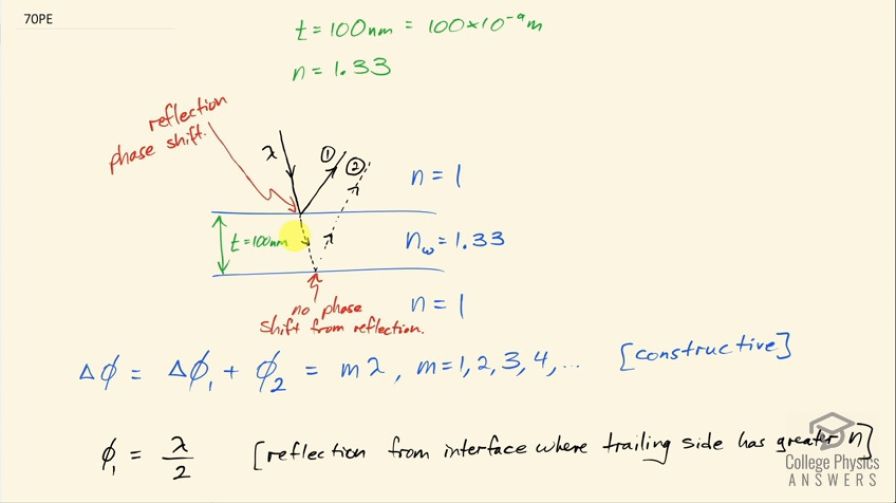 70PE
t = 100nm = 100×10⁻⁹m
n = 1.33
reflection
phase shift.
λ
① ②
n = 1
t = 100nm
n_w = 1.33
no phase
shift from reflection.
n = 1
Δϕ = Δϕ₁ + ϕ₂ = mλ, m=1, 2, 3, 4, ... [constructive]
ϕ₁ = λ/2 [reflection from interface where trailing side has greater n]
College Physics
ANSWERS